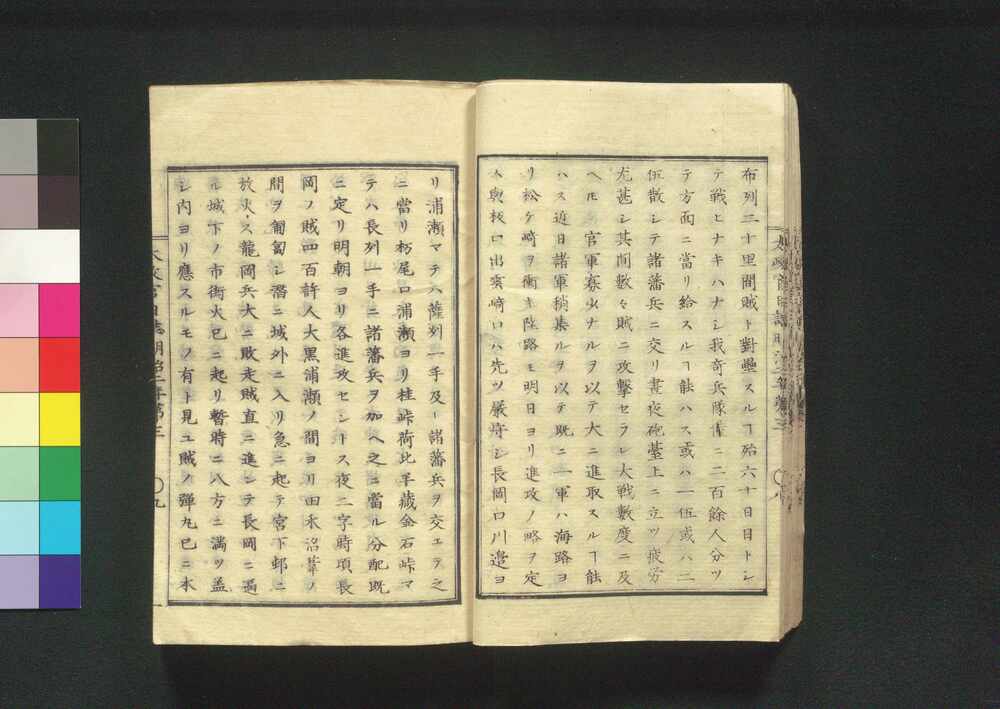 布列二十里間賊ト對壘スルヿ殆六十日日トシ
テ戰ヒナキハナシ我奇兵隊僅ニ二百餘人分ツ
テ方面ニ當リ給スルヿ能ハス或ハ一伍或ハ二
伍散シテ諸藩兵ニ交リ晝夜砲臺上ニ立ツ疲労
尤甚シ其間數々賊ニ攻撃セラレ大戰數度ニ及
ヘ𪜈官軍寡少ナルヲ以テ大ニ進取スルヿ能
ハス近日諸軍稍集ルヲ以テ既ニ一軍ハ海路ヨ
リ松ケ崎ヲ衝キ陸路モ明日ヨリ進攻ノ略ヲ定
メ與板口出雲崎口ハ先ツ嚴守シ長岡口川邉ヨ
太政官日誌明治二年第三
〇八
リ浦瀬マテハ薩列一手及ヒ諸藩兵ヲ交エテ之
ニ當リ朽尾口浦瀬ヨリ桂峠荷比半藏金石峠マ
テハ長列一手ニ諸藩兵ヲ加ヘ之ニ當ル分配既
ニ定リ明朝ヨリ各進攻セントス夜二字時頃長
岡ノ賊四百許人大黒浦瀬ノ間ヨリ田水沼葦ノ
間ヲ匍匐シ潜ニ城外ニ入リ急ニ起テ宮下邨ニ
放火ス龍岡兵大ニ敗走賊直ニ進ンテ長岡ニ逼
ル城下ノ市街火已ニ起リ暫時ニ八方ニ満ツ蓋
シ内ヨリ應スルモノ有ト見ユ賊ノ弾丸已ニ本
太政官日誌明治二年第三
〇九